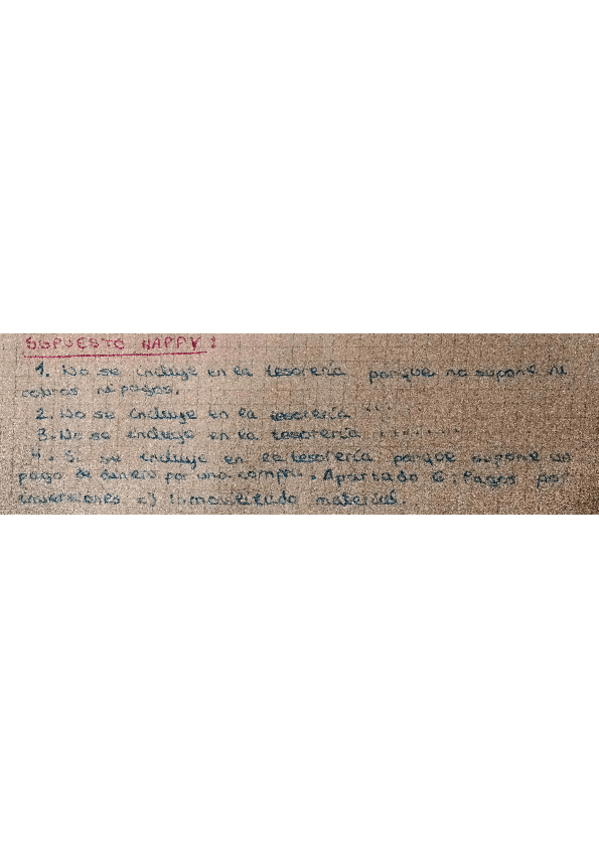 SUPUESTO HAPPY:
1. No se incluye en la tesorería porque no supone ni
cobros ni pagos.
2. No se incluye en la tesorería ...
3. No se incluye en la tesorería .......
4. Si se incluye en la tesorería porque supone un
pago de dinero por una compra. Apartado 6: Pagos por
inversiones c) inmovilizado material.